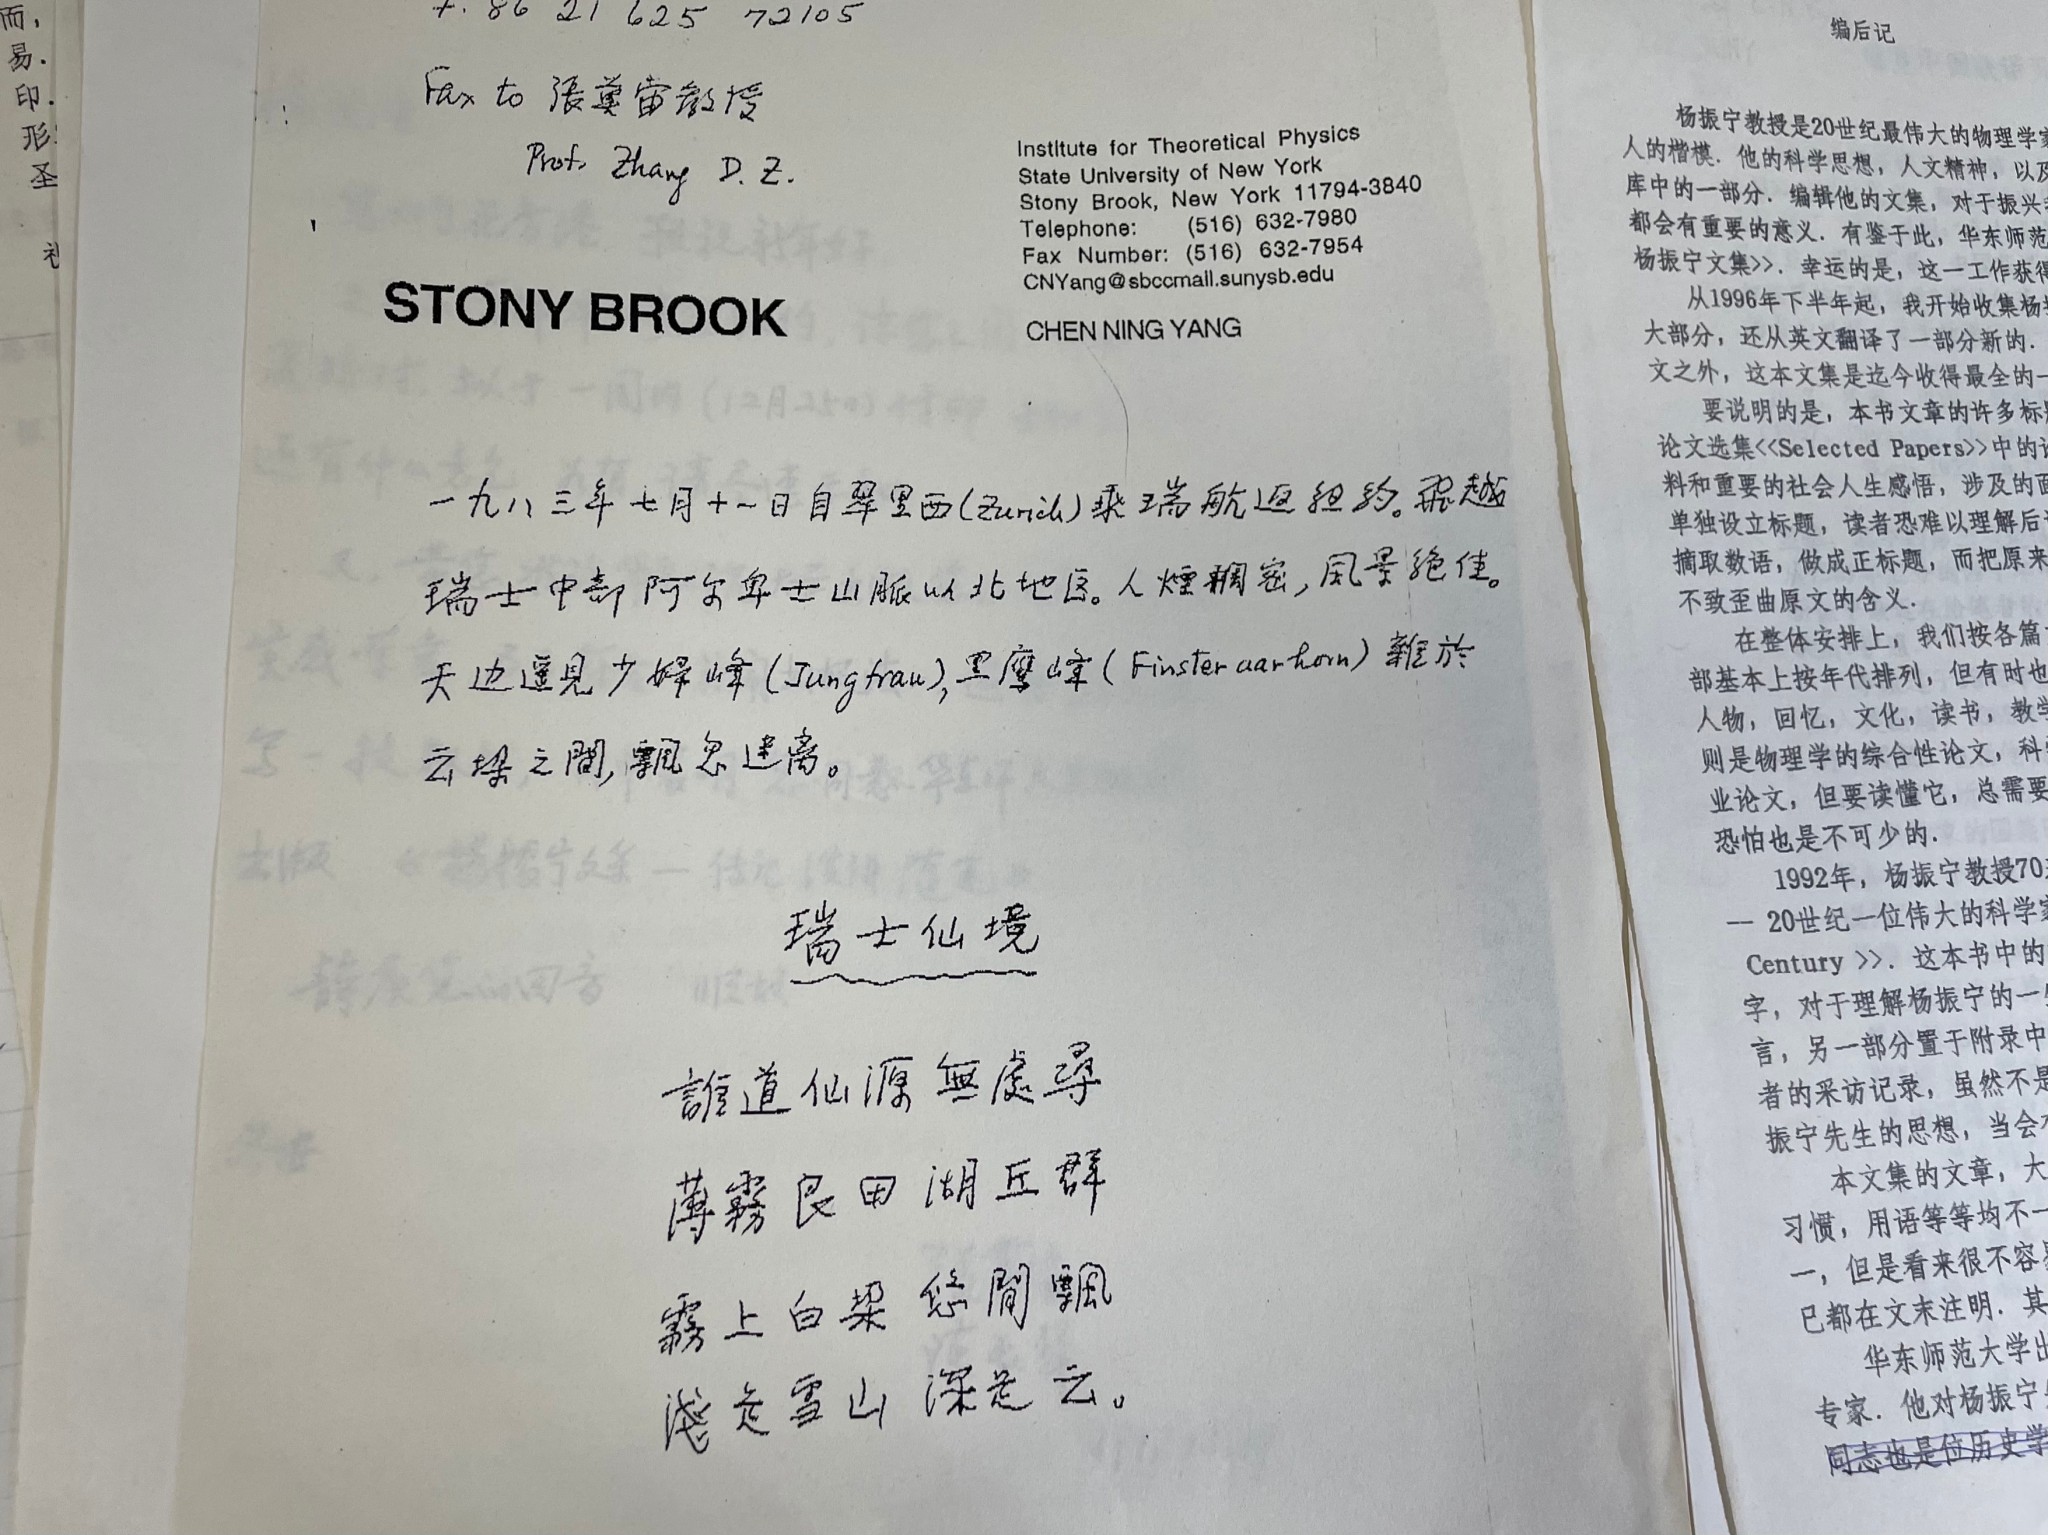 而,
易.
印.
形
圣
+. 86 21 625 72105
Fax to 張奠宙教授
Prof. Zhang D. Z.
Institute for Theoretical Physics
State University of New York
Stony Brook, New York 11794-3840
Telephone: (516) 632-7980
Fax Number: (516) 632-7954
CNYang@sbccmail.sunysb.edu
STONY BROOK
CHEN NING YANG
一九八三年七月十一日自翠里西(Zurich)乘瑞航返紐約。飛越
瑞士中部阿尔卑士山脈以北地区。人煙稠密,風景絶佳。
天边遥見少婦峰(Jungfrau),黑鹰峰(Finsteraarhorn)雜於
云堆之間,飄忽迷离。
瑞士仙境
誰道仙源無處尋
薄霧良田湖丘群
霧上白梁悠閒飄
淺是雪山深是云。
编后记
杨振宁教授是20世纪最伟大的物理学家
人的楷模.他的科学思想,人文精神,以及
库中的一部分.编辑他的文集,对于振兴
都会有重要的意义.有鉴于此,华东师范
杨振宁文集>>.幸运的是,这一工作获得
从1996年下半年起,我开始收集杨
大部分,还从英文翻译了一部分新的.
文之外,这本文集是迄今收得最全的一
要说明的是,本书文章的许多标
论文选集<<Selected Papers>>中的
料和重要的社会人生感悟,涉及的面
单独设立标题,读者恐难以理解后
摘取数语,做成正标题,而把原来
不致歪曲原文的含义.
在整体安排上,我们按各篇
部基本上按年代排列,但有时也
人物,回忆,文化,读书,教学
则是物理学的综合性论文,科
业论文,但要读懂它,总需要
恐怕也是不可少的.
1992年,杨振宁教授70
— 20世纪一位伟大的科学家
Century >>.这本书中的
字,对于理解杨振宁的一
言,另一部分置于附录中
者的采访记录,虽然不是
振宁先生的思想,当会
本文集的文章,大
习惯,用语等等均不一
一,但是看来很不容易
已都在文末注明.其
华东师范大学出
专家.他对杨振宁
同志也是位历史学